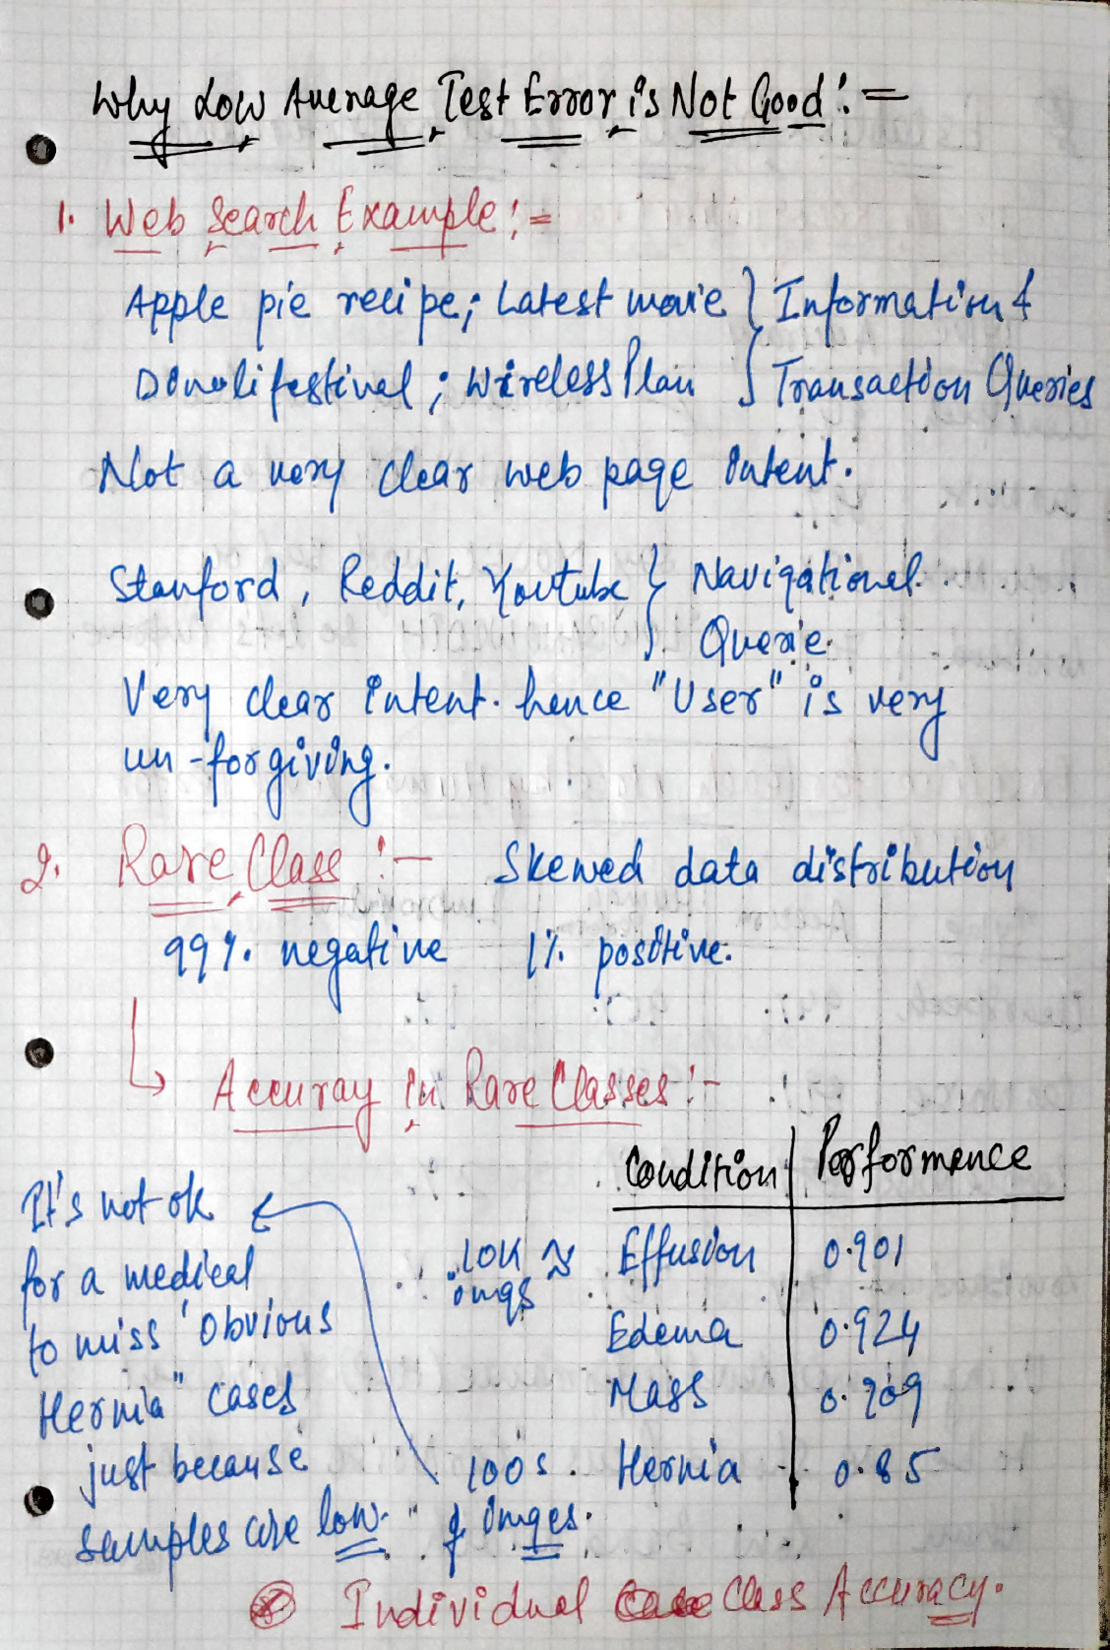 Why Low Average Test Error is Not Good :=
1. Web Search Example :=
Apple pie recipe; Latest movie } Information &
Diwali festival ; Wireless Plan } Transaction Queries
Not a very clear web page intent.
Stanford, Reddit, Youtube } Navigational
Querie.
Very clear intent. hence "User" is very
un-forgiving.
2. Rare Class :- Skewed data distribution
99%. negative 1%. positive.
↳ Accuray in Rare Classes :-
Condition | Performence
10K ≈ Effusion 0.901
imgs
Edema 0.924
Mass 0.909
100s. Hernia 0.85
of imges.
It's not ok
for a medical
to miss "Obvious
Hernia" cases
just because
samples are low.
⊗ Individual Class Accuracy.